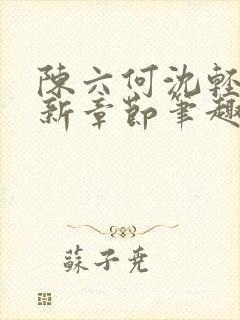 陳六何沈輕
新章節筆趣
蘇子堯